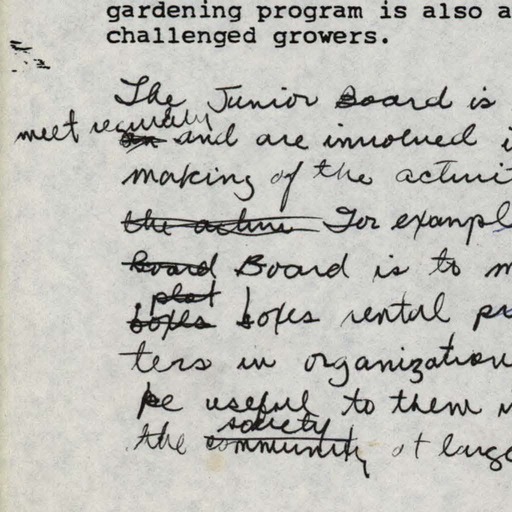 gardening program is also a
challenged growers.
The Junior Board is
meet regularly and are involved i
making of the activit
the active For exampl
Board Board is to m
plot
boxes boxes rental pr
ters in organization
be useful to them
society
the community at large